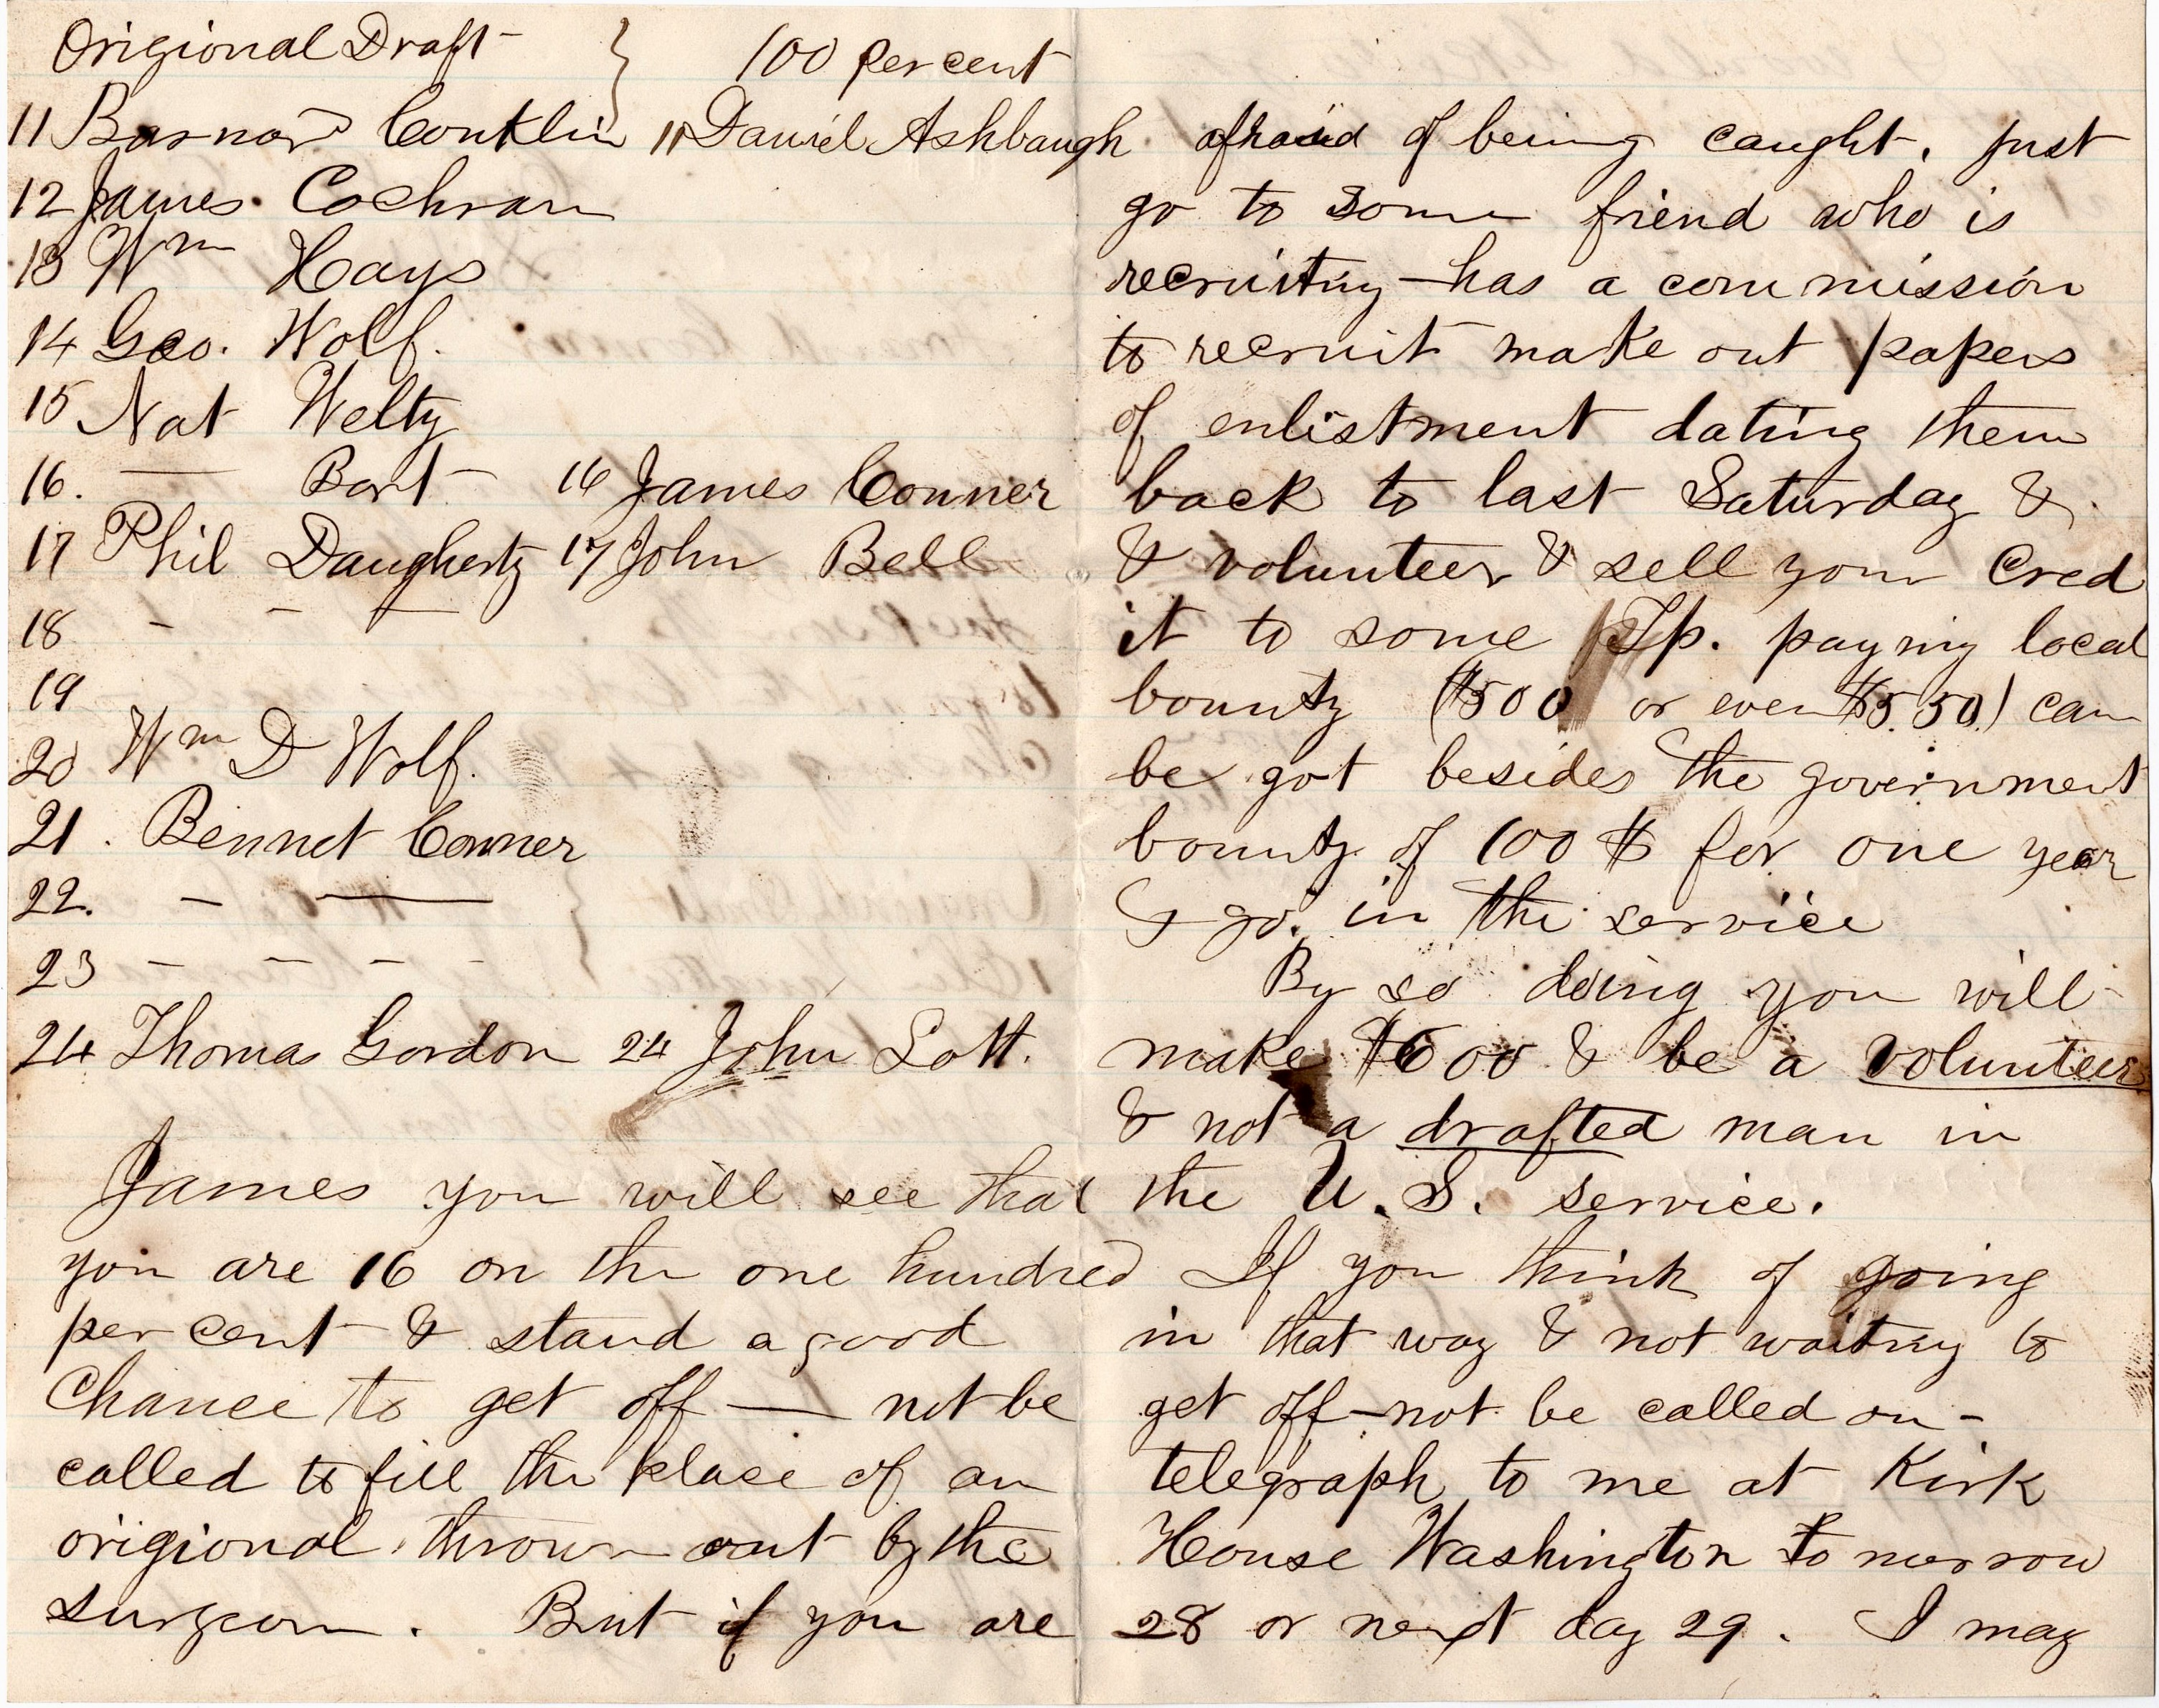 Origional Draft } 100 per cent
11 Barnard Conklin 11 Daniel Ashbaugh
12 James Cochran
13 Wm Hays
14 Geo. Wolf.
15 Nat Welty
16. — Bart — 16 James Conner
17 Phil Daugherty 17 John Bell
18 - - —
19
20 Wm D Wolf.
21. Bennet Conner
22. — —
23 - - - -
24 Thomas Gordon 24 John Lott.
James you will see that
you are 16 on the one hundred
per cent & stand a good
Chance to get off — not be
called to fill the place of an
origional thrown out by the
surgeon. But if you are
afraid of being caught, just
go to some friend who is
recruiting — has a commission
to recruit make out papers
of enlistment dating them
back to last Saturday &
& volunteer & sell your Cred
it to some Tp. paying local
bounty ($500 or even $550) can
be got besides the government
bounty of 100 $ for one year
& go in the service
By so doing you will
make $600 & be a volunteer
& not a drafted man in
the U. S. service.
If you think of going
in that way & not waiting to
get off - not be called on -
telegraph to me at Kirk
House Washington to morrow
28 or next day 29. I may